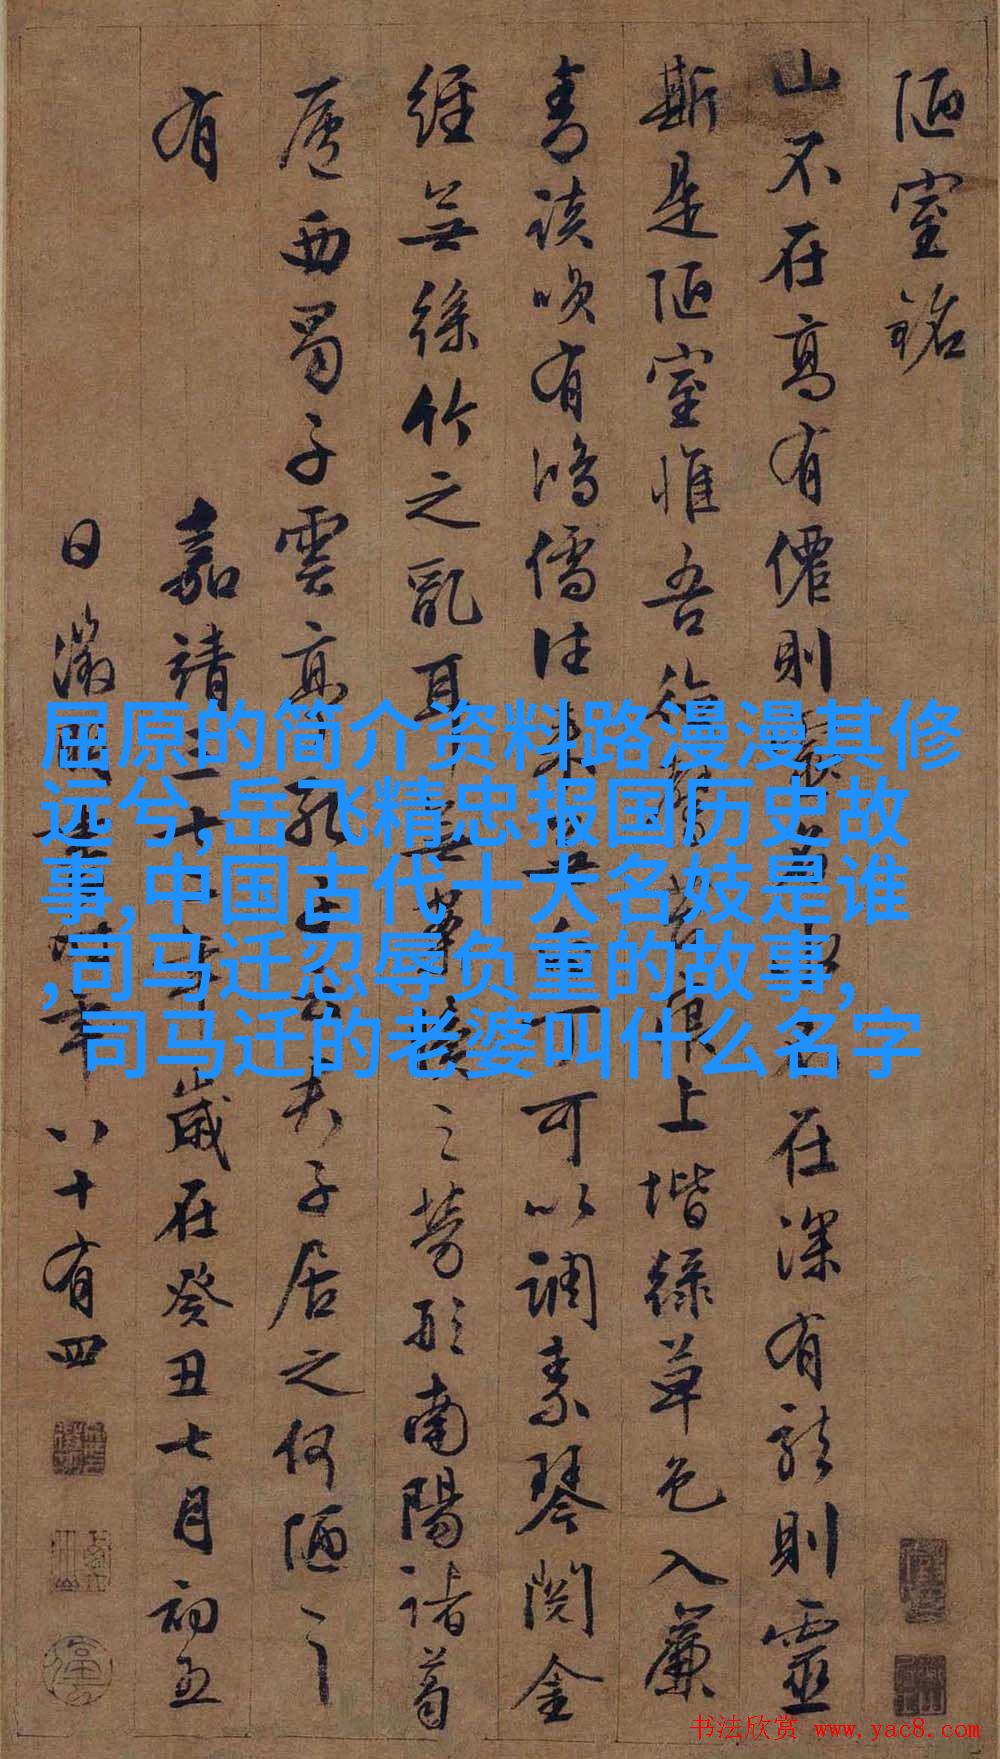 陋室銘
山不在高有僊則 在深有龍則靈
斯是陋室惟吾德馨苔痕上堦綠草色入簾
青談咲有鴻儒往來 可以調素琴閱金
經無絲竹之亂耳 之勞形南陽諸葛
廬西蜀子雲亭孔 夫子居之何陋之
有
嘉靖三十 年歲在癸丑七月初五
日徵明 年八十有四
屈原的简介资料路漫漫其修
远兮,岳飞精忠报国历史故
事,中国古代十大名妓是谁
,司马迁忍辱负重的故事,
司马迁的老婆叫什么名字
书法欣赏 www.yac8.com